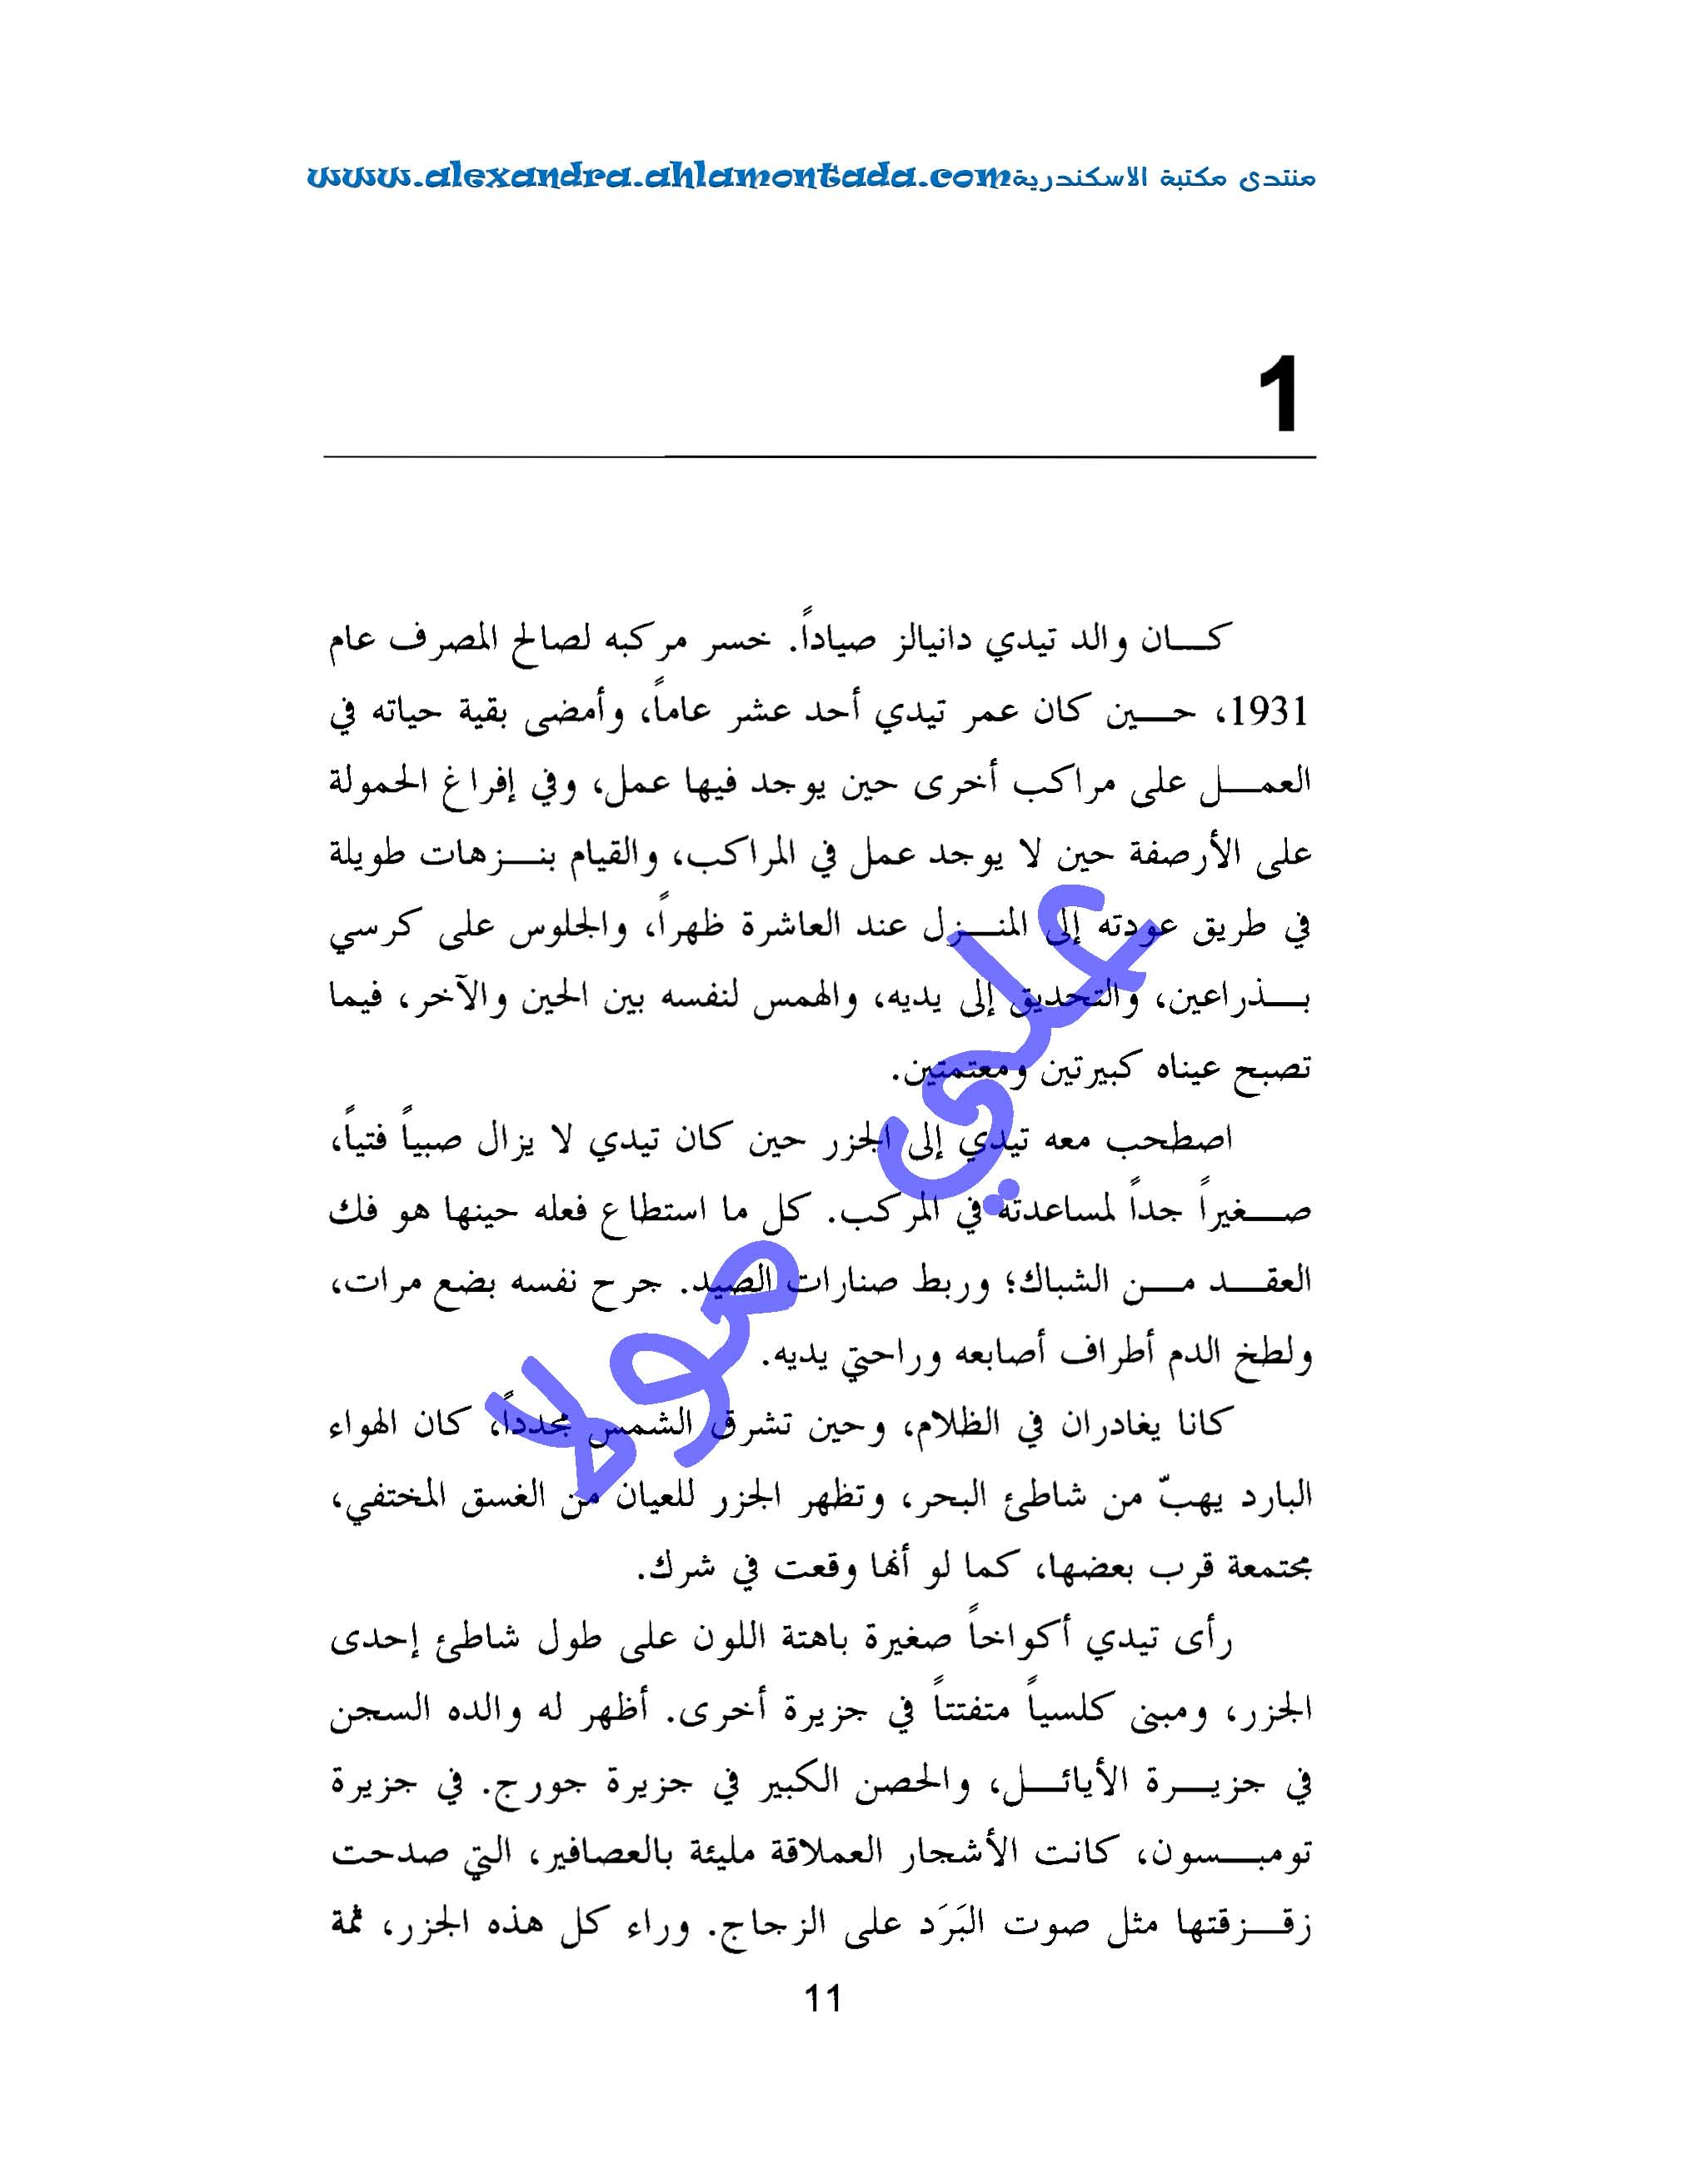 منتدى مكتبة الاسكندرية www.alexandra.ahlamontada.com
1
كـــان والد تيدي دانيالز صياداً. خسر مركبه لصالح المصرف عام
1931، حـــين كان عمر تيدي أحد عشر عاماً، وأمضى بقية حياته في
العمـــل على مراكب أخرى حين يوجد فيها عمل، وفي إفراغ الحمولة
على الأرصفة حين لا يوجد عمل في المراكب، والقيام بنـــزهات طويلة
في طريق عودته إلى المنـــزل عند العاشرة ظهراً، والجلوس على كرسي
بـــذراعين، والتحديق إلى يديه، والهمس لنفسه بين الحين والآخر، فيما
تصبح عيناه كبيرتين ومعتمتين.
اصطحب معه تيدي إلى الجزر حين كان تيدي لا يزال صبياً فتياً،
صـــغيراً جداً لمساعدته في المركب. كل ما استطاع فعله حينها هو فك
العقـــد مـــن الشباك؛ وربط صنارات الصيد. جرح نفسه بضع مرات،
ولطخ الدم أطراف أصابعه وراحتي يديه.
كانا يغادران في الظلام، وحين تشرق الشمس مجدداً، كان الهواء
البارد يهبّ من شاطئ البحر، وتظهر الجزر للعيان من الغسق المختفي،
مجتمعة قرب بعضها، كما لو أنها وقعت في شرك.
رأى تيدي أكواخاً صغيرة باهتة اللون على طول شاطئ إحدى
الجزر، ومبنى كلسياً متفتتاً في جزيرة أخرى. أظهر له والده السجن
في جزيـــرة الأيائـــل، والحصن الكبير في جزيرة جورج. في جزيرة
تومبـــسون، كانت الأشجار العملاقة مليئة بالعصافير، التي صدحت
زقـــزقتها مثل صوت البَرَد على الزجاج. وراء كل هذه الجزر، ثمة
11
علي مولا